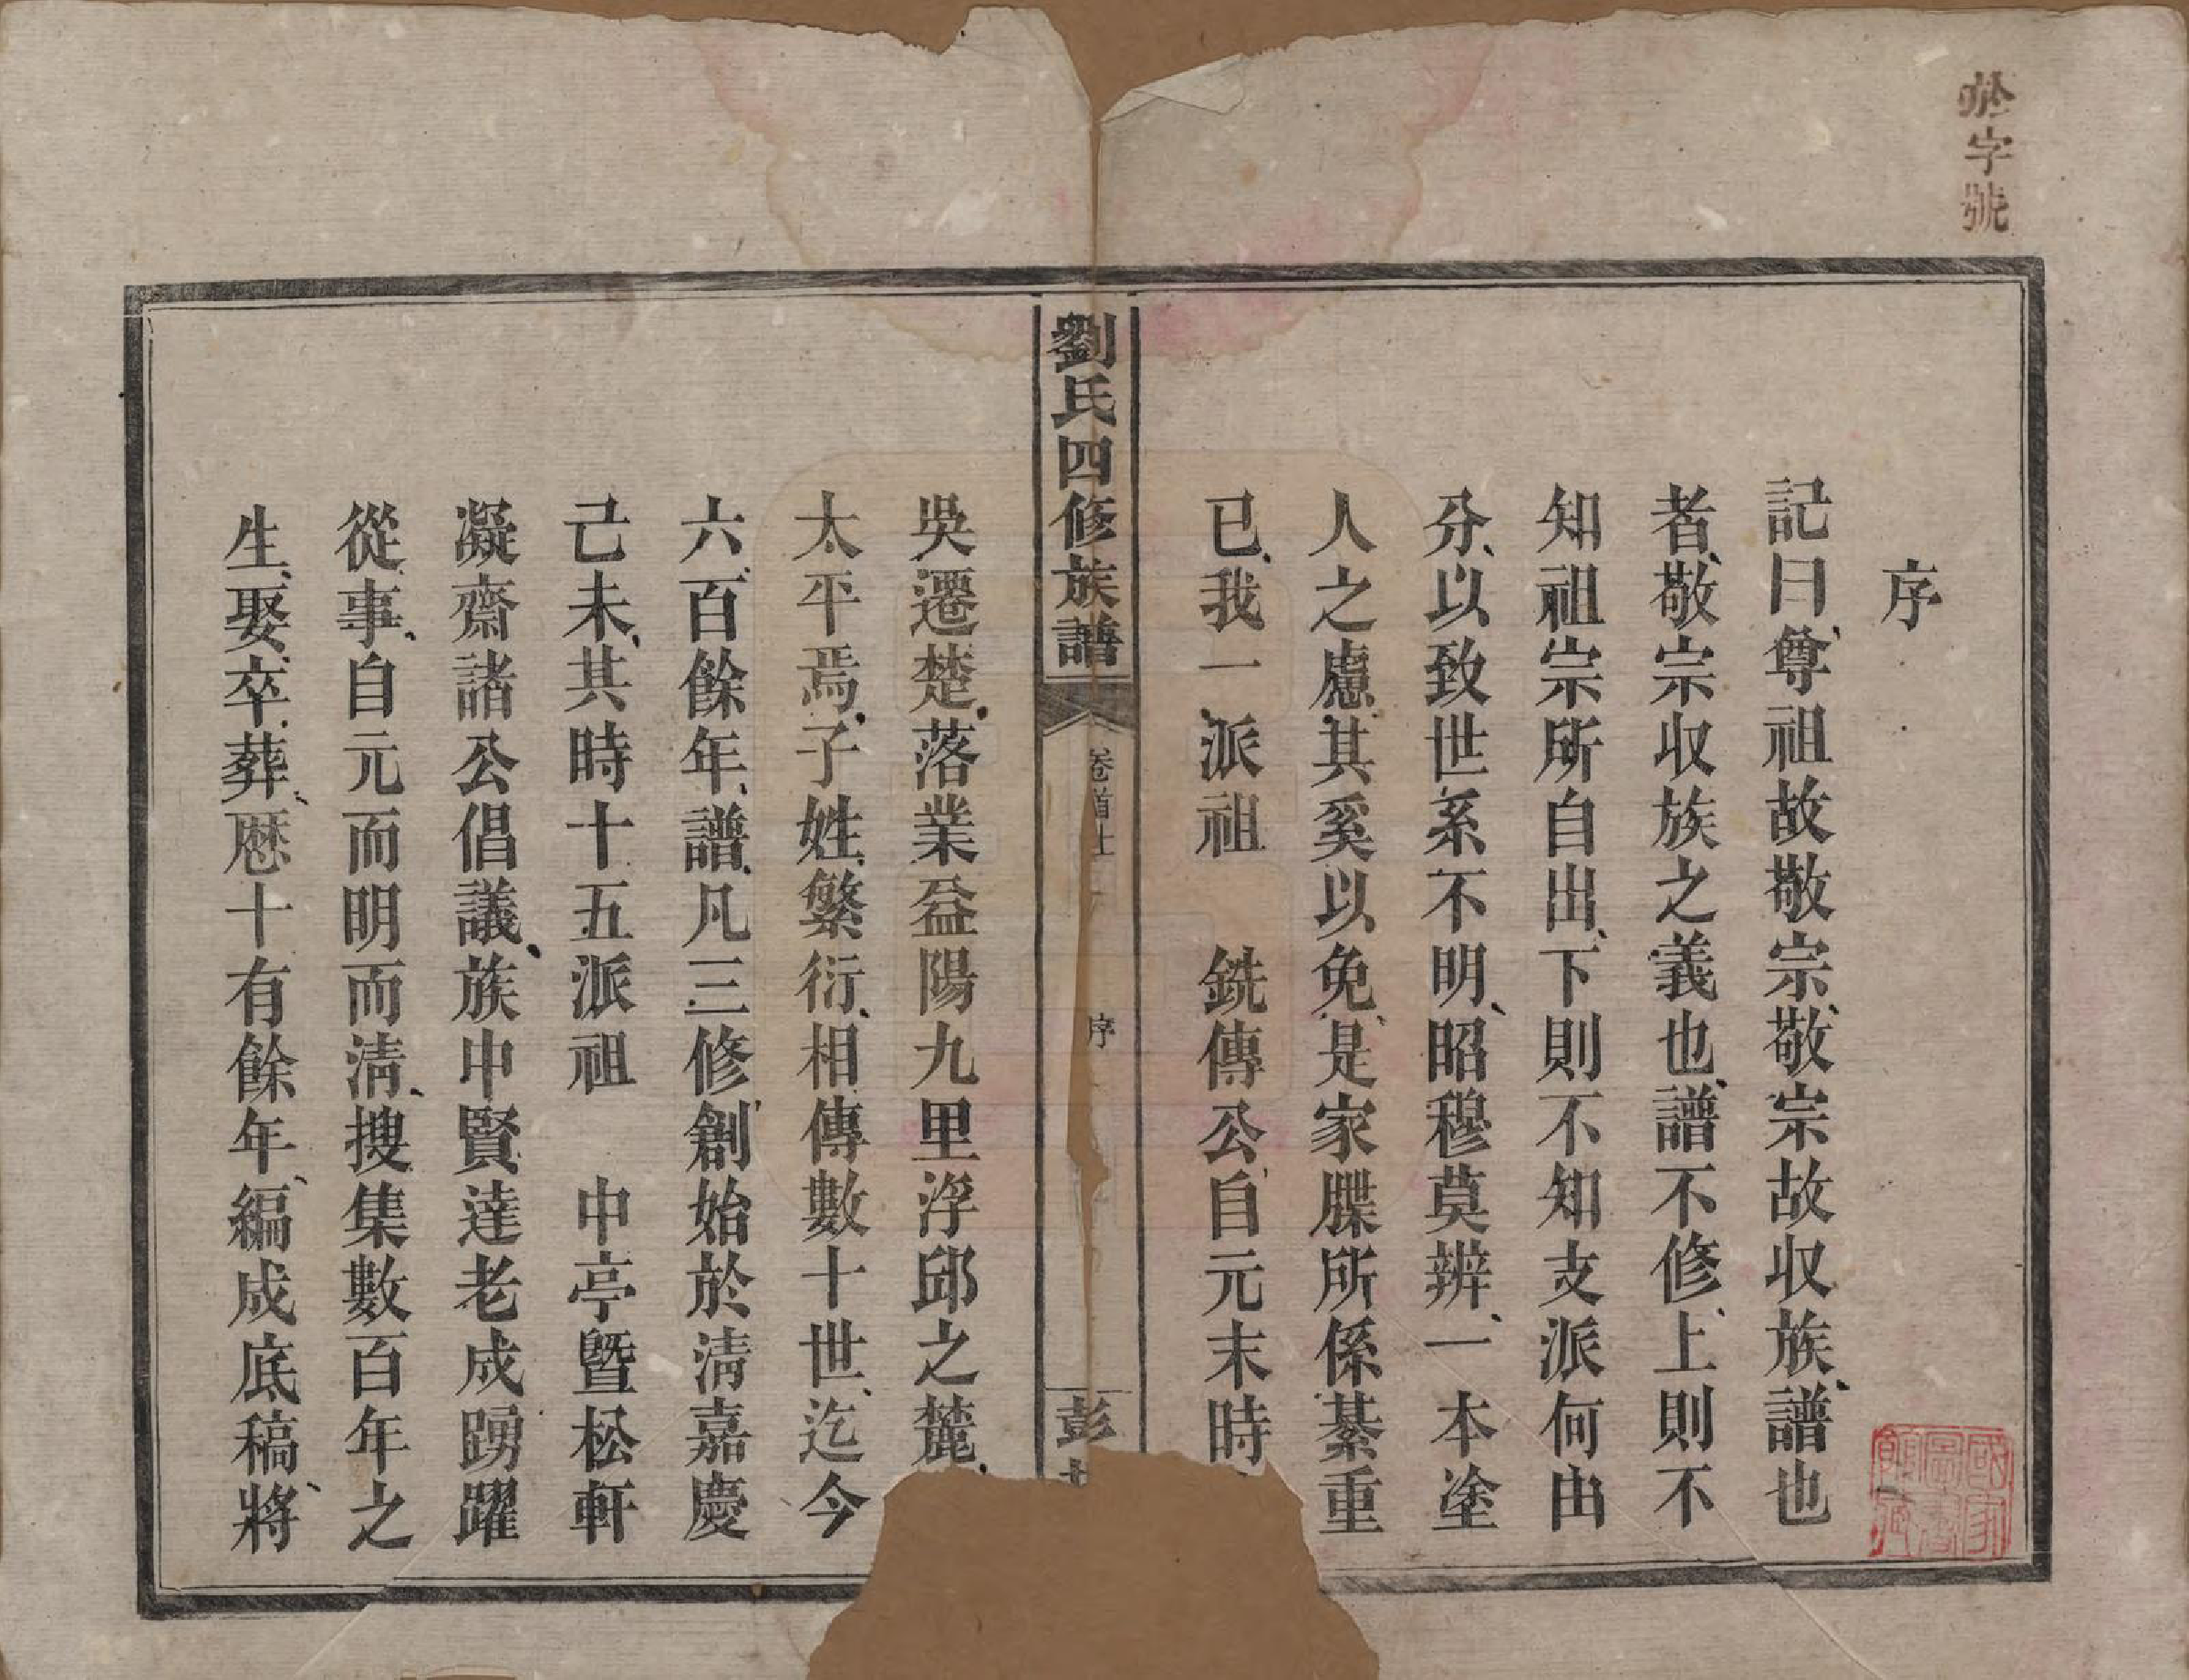 於字號
序
記曰、尊祖故敬宗、敬宗故収族、譜也
者、敬宗収族之義也、譜不修、上則不
知祖宗所自出、下則不知支派何由
分、以致世系不明、昭穆莫辨、一本塗
人之慮、其奚以免、是家牒所係綦重
已、我一派祖　銑傳公、自元末時
劉氏四修族譜
卷首上
序
彭
吳遷楚、落業益陽九里浮邱之麓、
太平焉、子姓繁衍、相傳數十世、迄今
六百餘年、譜凡三修、創始於淸嘉慶
己未、其時十五派祖　中亭暨松軒
凝齋諸公倡議、族中賢達老成踴躍
從事、自元而明而淸、搜集數百年之
生、娶、卒、葬、歷十有餘年、編成底稿、將
國家圖書館藏